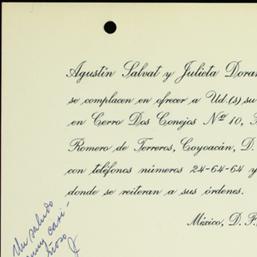 Agustín Salvat y Julieta Doran
se complacen en ofrecer a Ud.(s) su
en Cerro Dos Conejos Nº 10,
Romero de Terreros, Coyoacán, D.
con teléfonos números 24-64-64 y
donde se reiteran a sus órdenes.
México, D. F.
Un saludo
muy cari-
ñoso